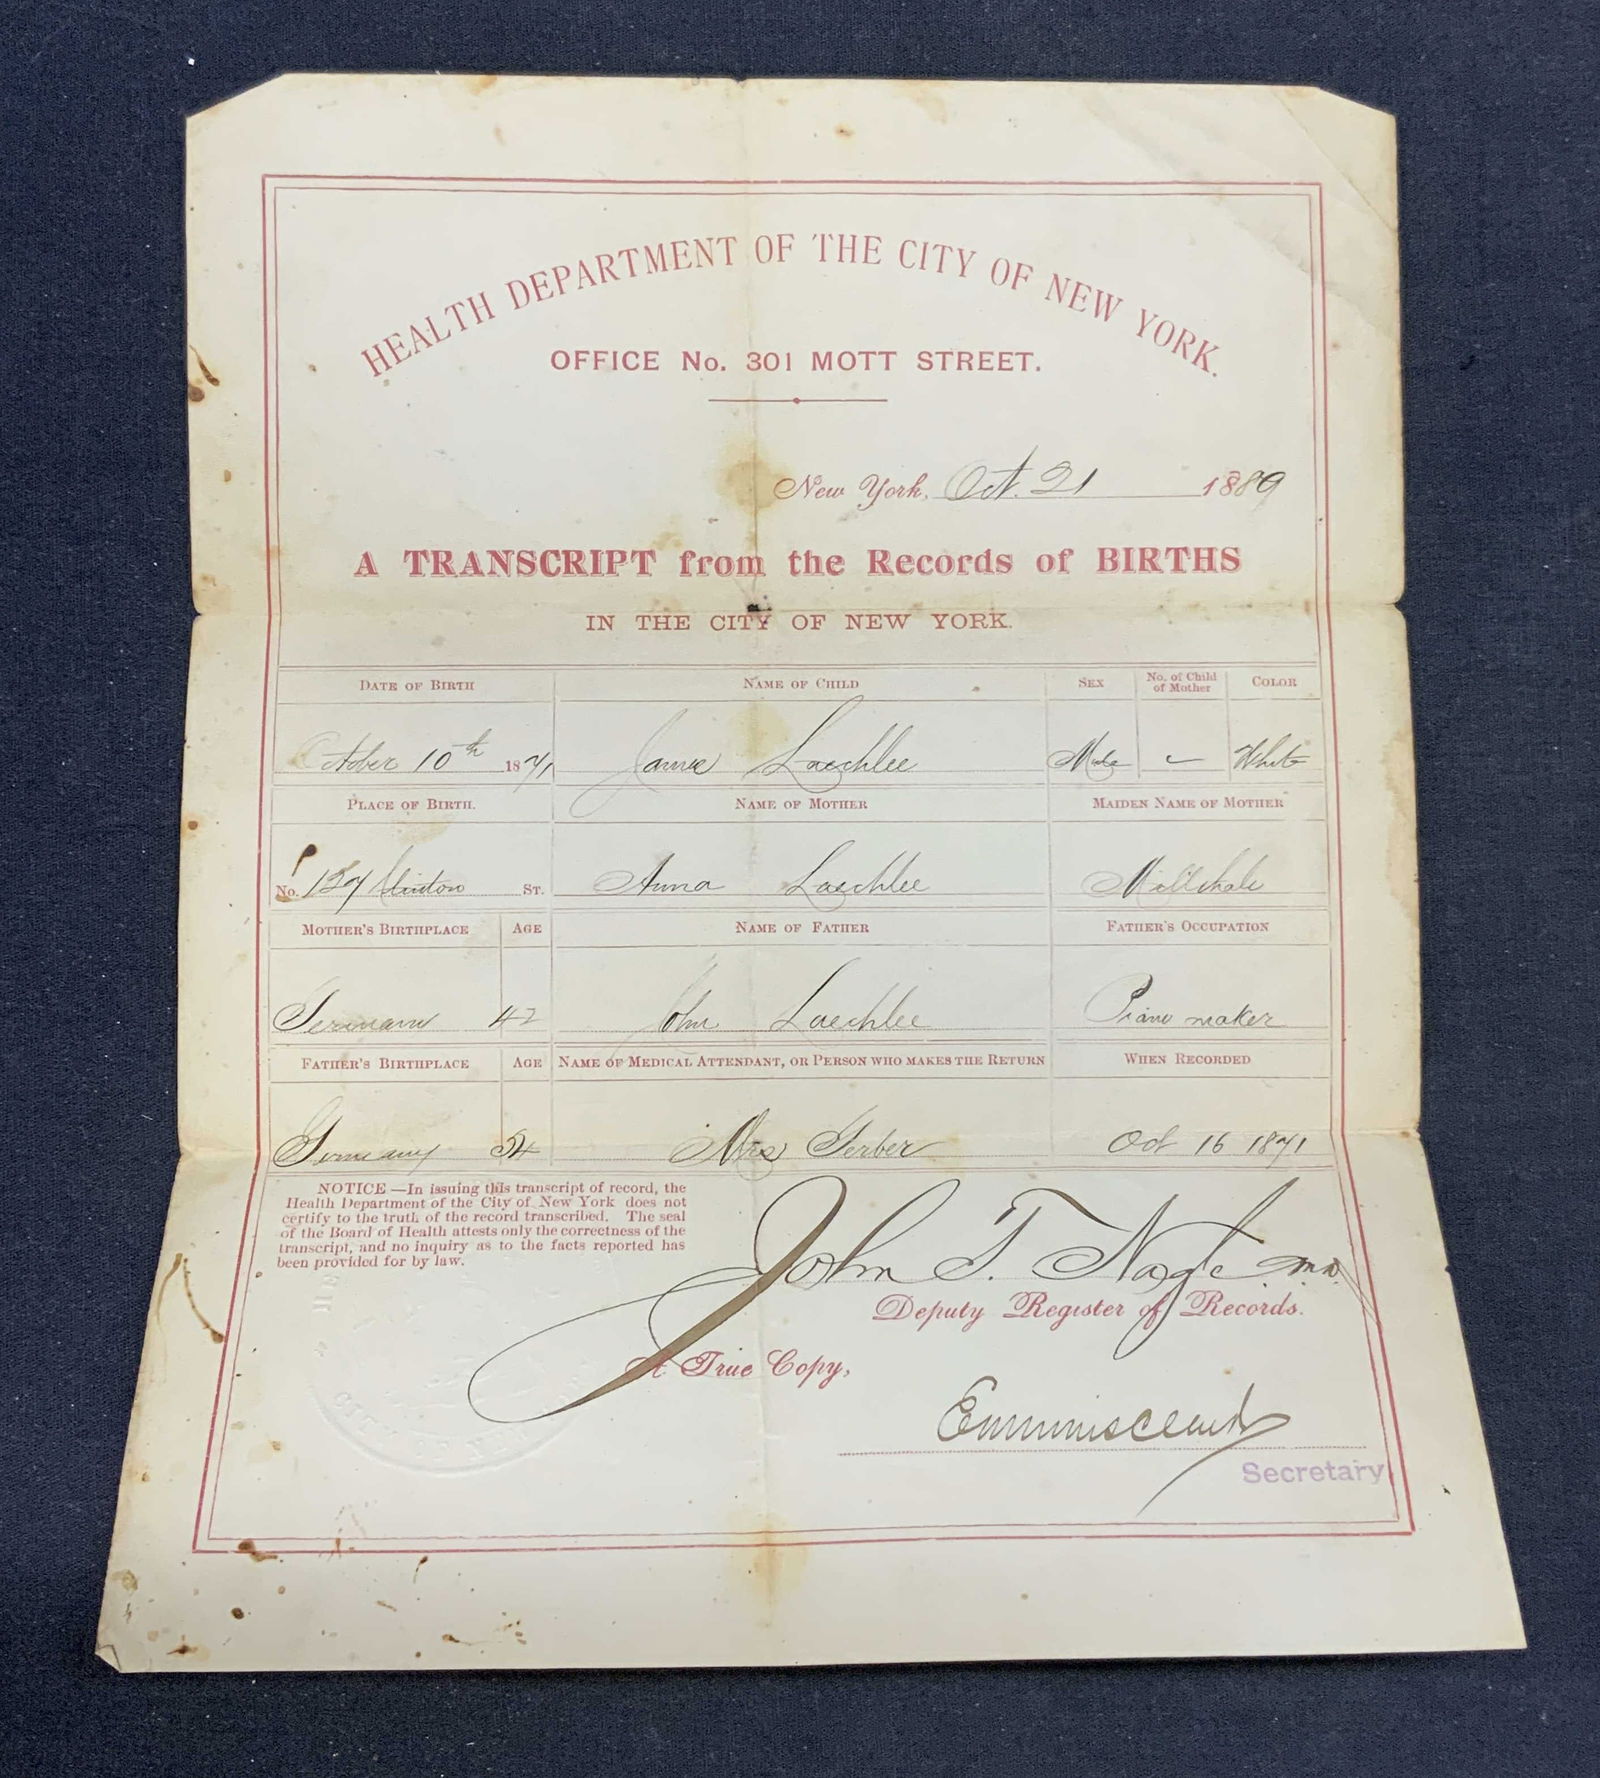 HEALTH DEPARTMENT OF THE CITY OF NEW YORK.
OFFICE No. 301 MOTT STREET.
New York, Oct. 21 1889
A TRANSCRIPT from the Records of BIRTHS
IN THE CITY OF NEW YORK.
DATE OF BIRTH NAME OF CHILD SEX No. of Child of Mother COLOR
October 10th 1871 Laechlee Male – White
PLACE OF BIRTH. NAME OF MOTHER MAIDEN NAME OF MOTHER
No. Clinton ST. Anna Laechlee
MOTHER'S BIRTHPLACE AGE NAME OF FATHER FATHER'S OCCUPATION
Germany 42 John Laechlee Piano maker
FATHER'S BIRTHPLACE AGE NAME OF MEDICAL ATTENDANT, OR PERSON WHO MAKES THE RETURN WHEN RECORDED
Germany 54 Mrs Gerber Oct 16 1871
NOTICE—In issuing this transcript of record, the
Health Department of the City of New York does not
certify to the truth of the record transcribed. The seal
of the Board of Health attests only the correctness of the
transcript, and no inquiry as to the facts reported has
been provided for by law.
John T. Nagle M.D.
Deputy Register of Records.
A True Copy,
Secretary